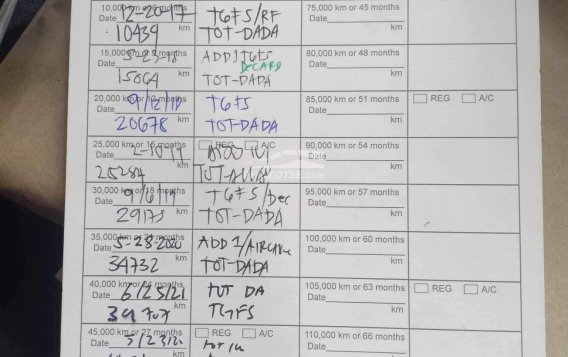 10,000 km or months
Date 12-20-17
10439 km
TGFS/RF
TOT-DADA
75,000 km or 45 months
Date
km
15,000 km or months
Date 5-23-18
15064 km
ADD1TGFS
DECARB
TOT-DADA
80,000 km or 48 months
Date
km
20,000 km or 12 months
Date 9/12/18
20678 km
TGFS
TOT-DADA
85,000 km or 51 months
Date
km
REG A/C
25,000 km or months
Date 2-10-19
km
REG A/C
90,000 km or 54 months
Date
km
30,000 km or 18 months
Date 9/6/19
29175 km
TGFS/Dec
TOT-DADA
95,000 km or 57 months
Date
km
35,000 km or months
Date 5-28-2020
34732 km
ADD1/AIRCARE
TOT-DADA
100,000 km or 60 months
Date
km
40,000 km or 24 months
Date 6/25/21
39707 km
TOT DA
TGFS
105,000 km or 63 months
Date
km
REG A/C
45,000 km or 27 months
Date
km
REG A/C
110,000 km or 66 months
Date
km